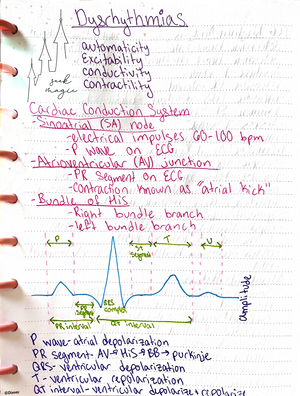 Dysrhythmias
automaticity
Excitability
conductivity
contractility
seek
magic
Cardiac Conduction System
- Sinoatrial (SA) node
- electrical impulses 60-100 bpm
- P wave on ECG
- Atrioventricular (AV) junction
- PR segment on ECG
- Contraction known as "atrial kick"
- Bundle of His
- Right bundle branch
- left bundle branch
P
ST
segment
T
U
PR
segment
QRS
complex
PR interval
QT interval
amplitude
P wave - atrial depolarization
PR segment - AV → HiS → BB → purkinje
QRS - ventricular depolarization
T - ventricular repolarization
QT interval - ventricular depolarize + repolarize
©Disney